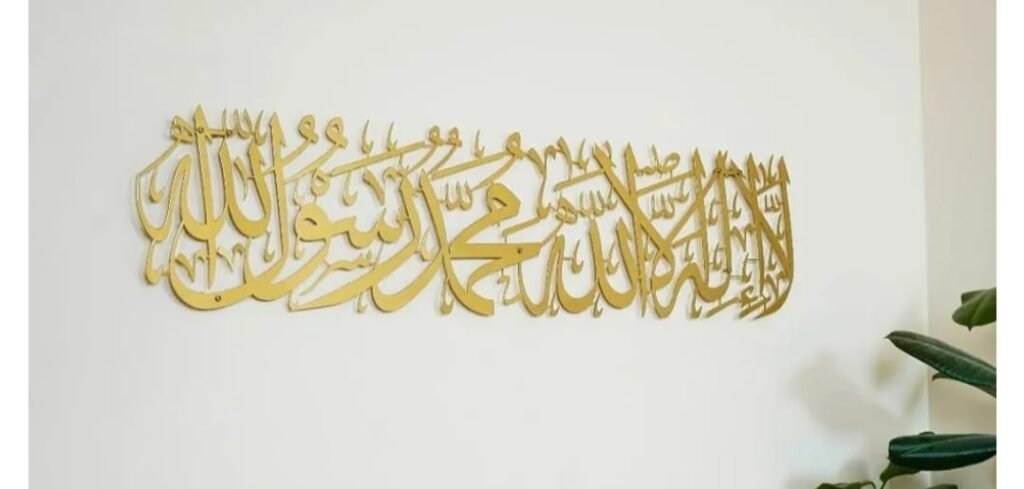 لَا إِلٰهَ إِلَّا اللّٰه مُحَمَّد رَسُوْلُ اللّٰه